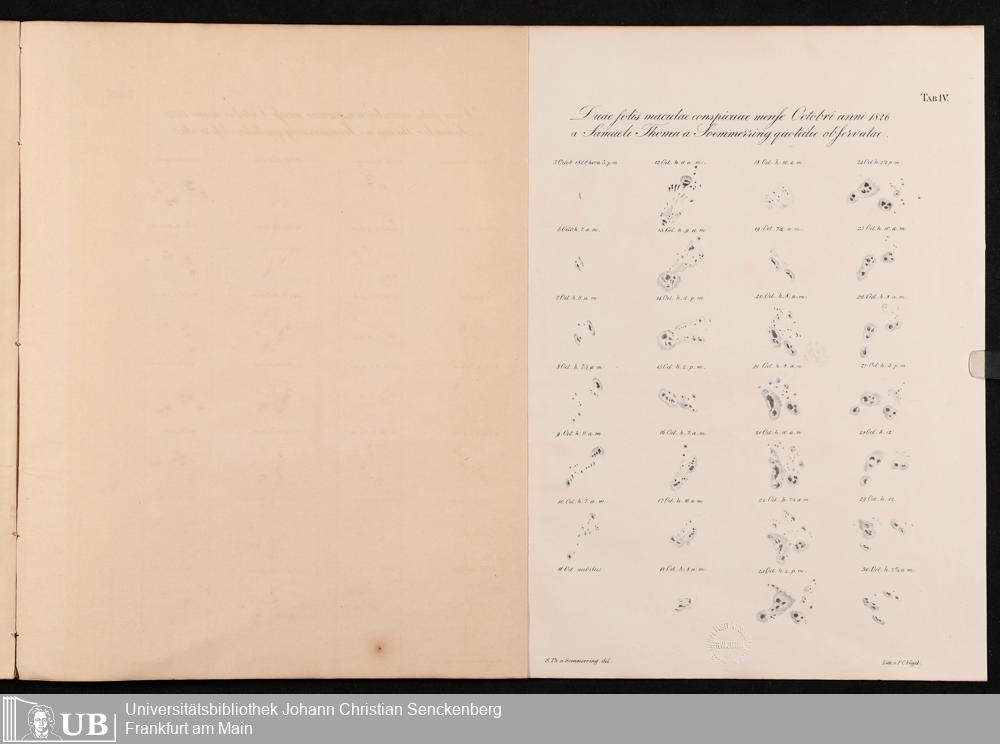 TAB IV.
Duae solis maculae conspicuae mense Octobri anni 1826
a Samuele Thoma a Soemmerring quotidie observatae.
5 Octob 1826 hora 3. p.m
6 Oct h. 7. a.m.
7 Oct. h. 8. a.m
8 Oct. h. 7½ a.m
9 Oct. h. 8. a.m
10 Oct. h. 7. a.m.
11 Oct nubilus
12 Oct. h. 8 a.m.
13 Oct. h. 9. a.m
14 Oct. h. 2. p.m
15 Oct. h. 2. p.m.
16 Oct. h. 7. a.m.
17 Oct. h. 10. a.m
18 Oct. h. 8 a.m.
18 Oct. h. 10. a.m.
19 Oct. 7¼ a.m.
20 Oct. h. 8. a.m.
21 Oct. h. 9. a.m
Oct. h. 10. a.m.
24 Oct. h. 7½ a.m
23 Oct. h. 2. p.m.
24 Oct h. 2½ p.m
25 Oct. h. 10. a.m.
26 Oct. h. 8. a.m.
27 Oct. h. 3 p.m
28 Oct. h. 12
29 Oct. h. 12
30 Oct. h. 7½ a.m.
S. Th. a Soemmerring del.
Lith. v. F. C. Vogel.
UB
Universitätsbibliothek Johann Christian Senckenberg
Frankfurt am Main